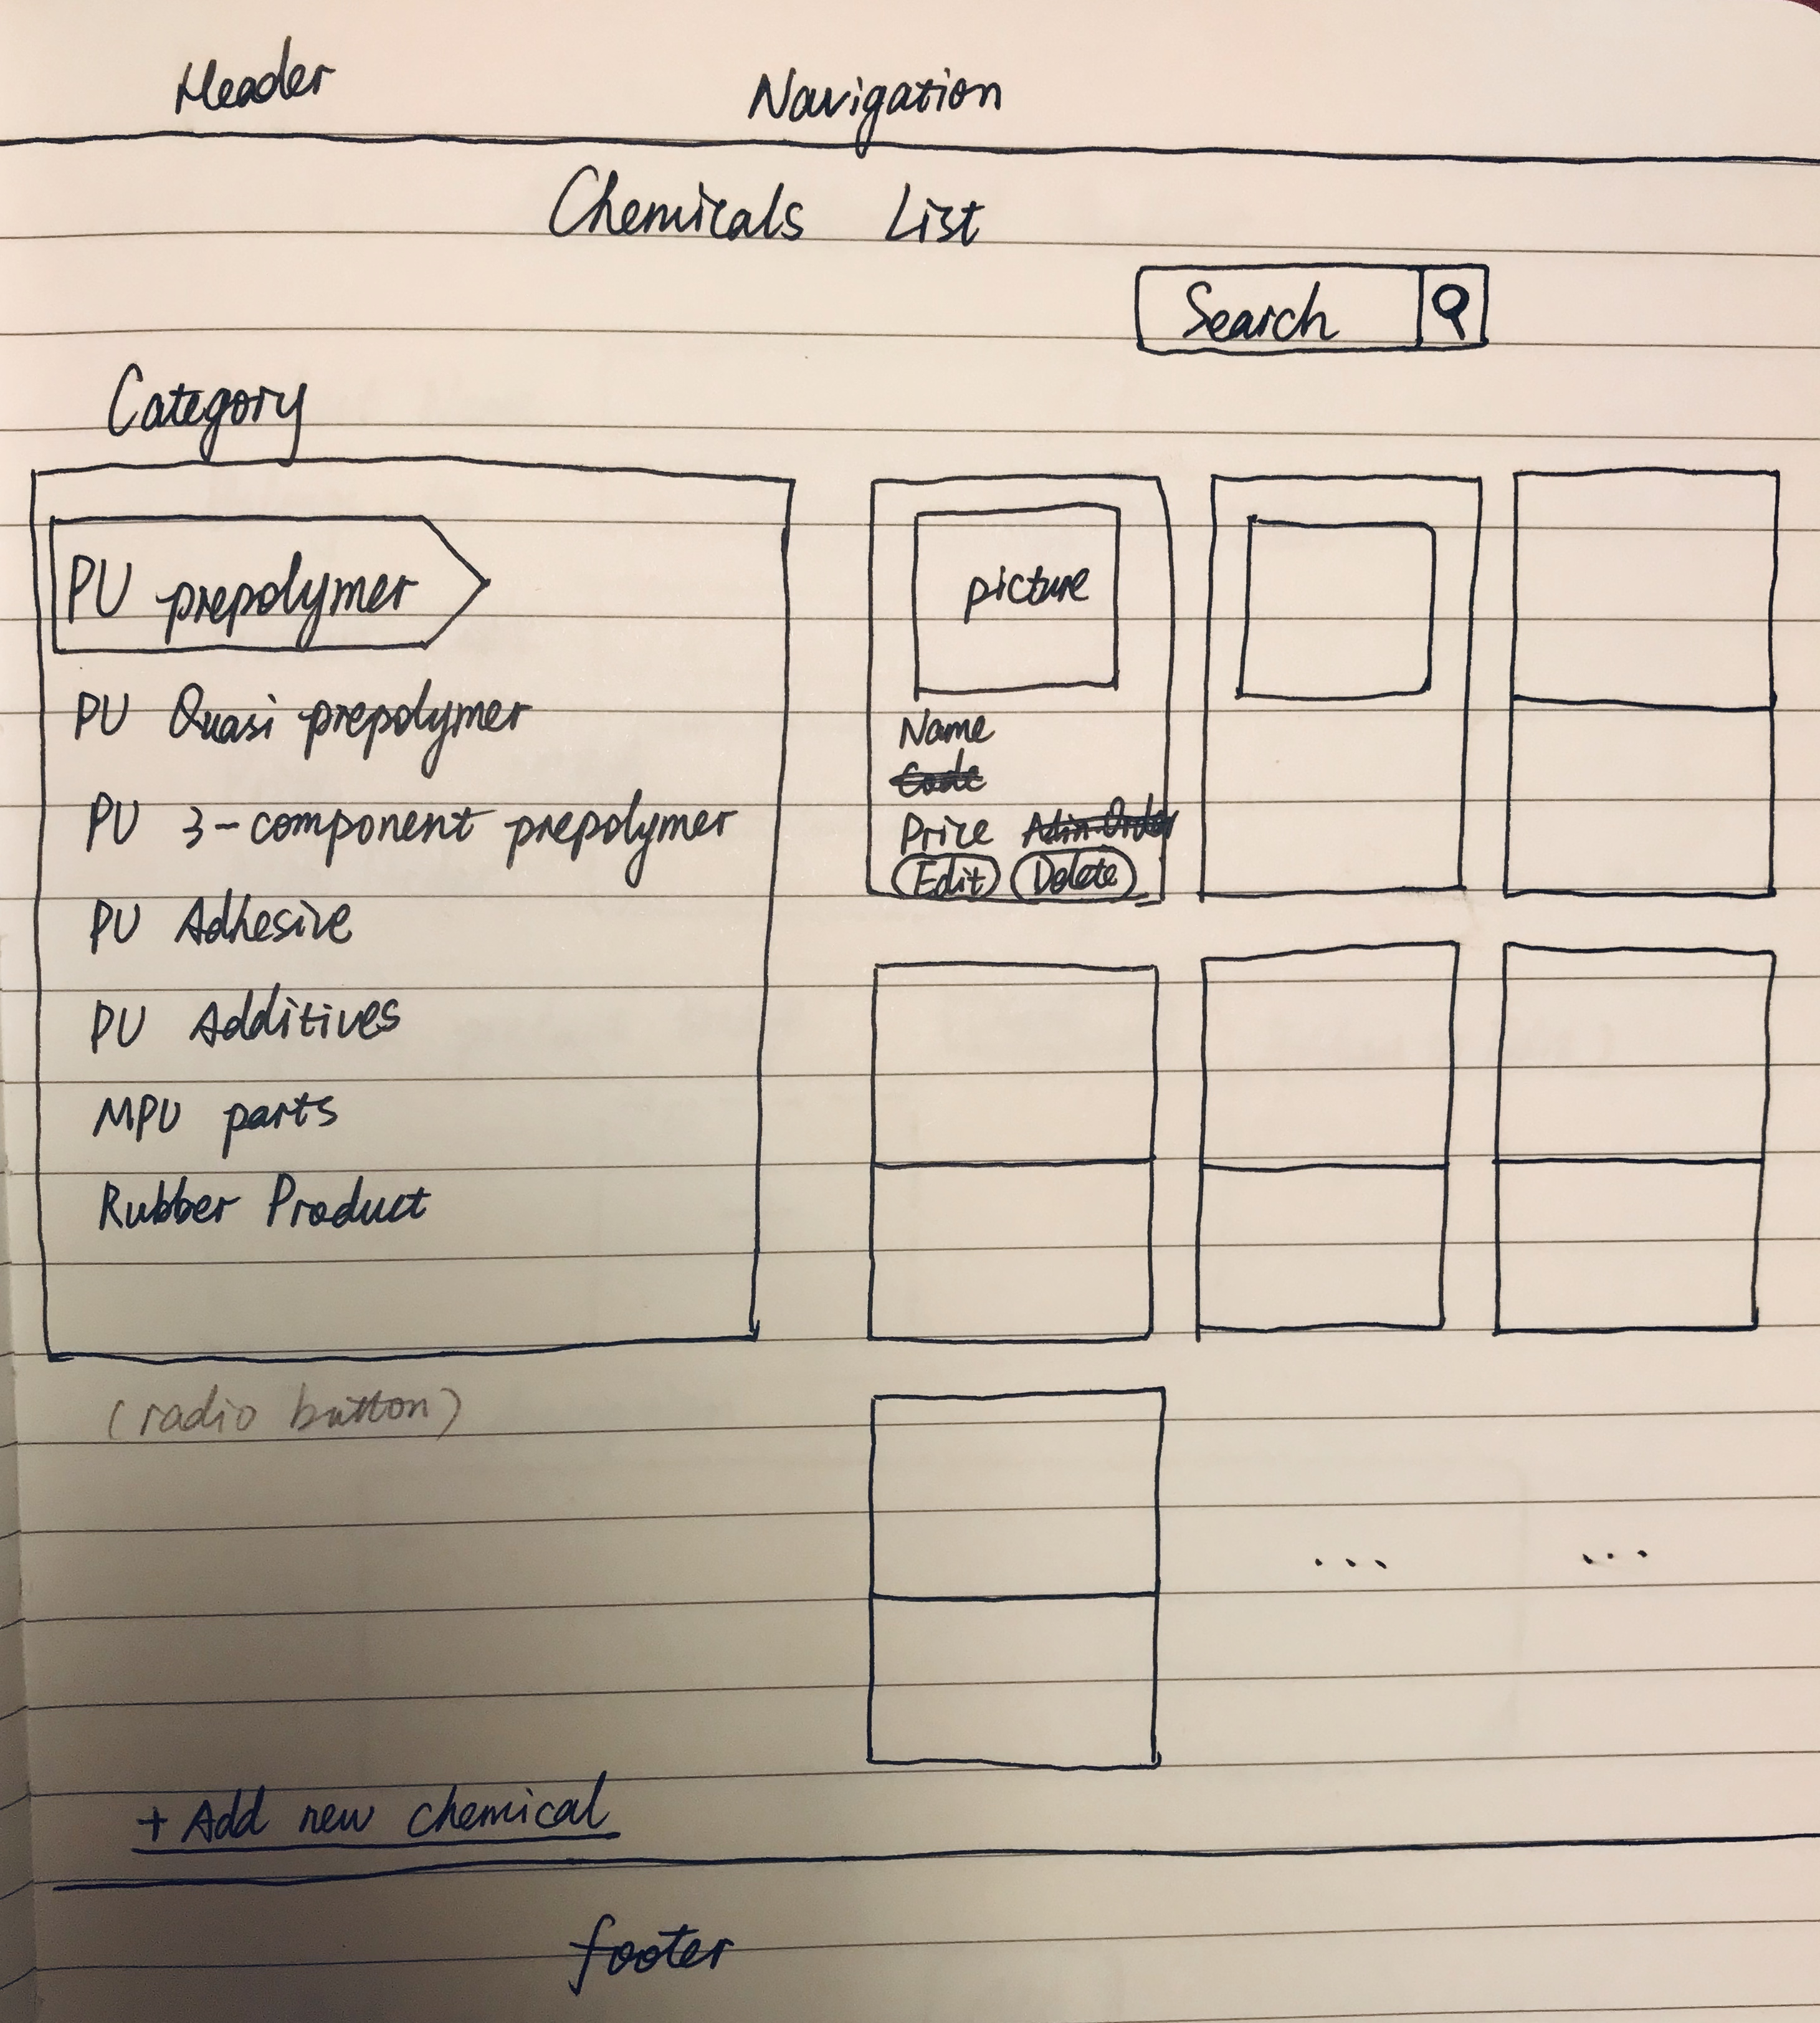 Header Navigation
Chemicals List
Search
Category
PU prepolymer
PU Quasi prepolymer
PU 3-component prepolymer
PU Adhesive
PU Additives
MPU parts
Rubber Product
(radio button)
picture
Name
Code
Price
Edit Delete
... ...
+ Add new chemical
footer